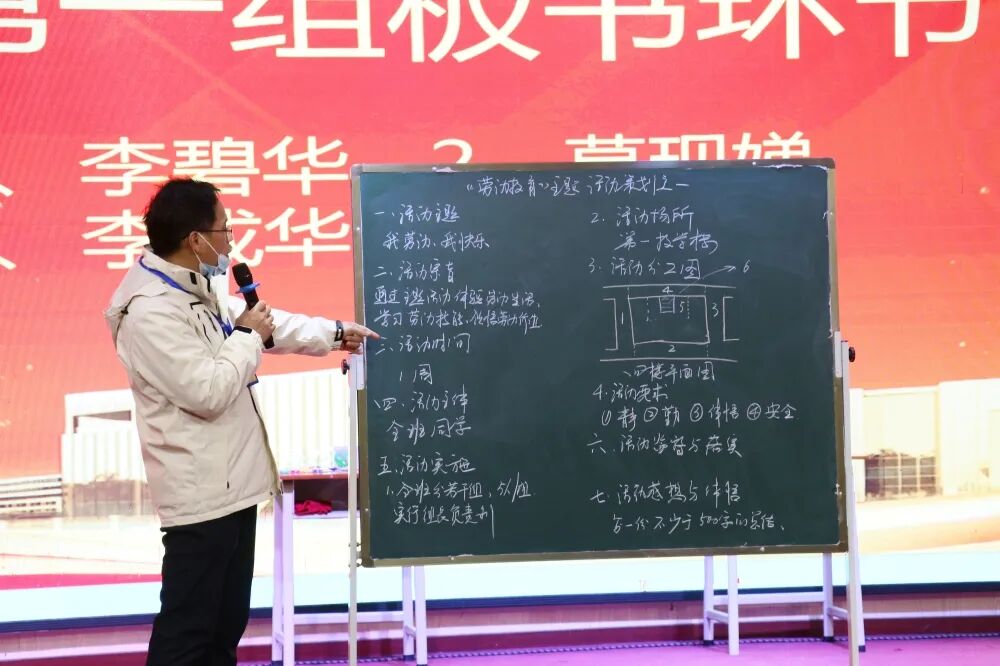 第一组板书环节
李碧华 3
李成华
《劳动教育》主题活动策划
一、活动主题
我劳动、我快乐
二、活动宗旨
通过主题活动体验劳动生活、
学习劳动技能、体悟劳动
三、活动时间
1周
四、活动主体
全班同学
五、活动实施
1、全班分若干组，5人/组
实行组长负责制
2、活动场所
第一教学楼
3、活动分工图
6
4
1
5
3
2
四楼平面图
4、活动要求
①静 ②勤 ③体悟 ④安全
六、活动监督与落实
七、活动感想与体悟
写一份不少于500字的总结、